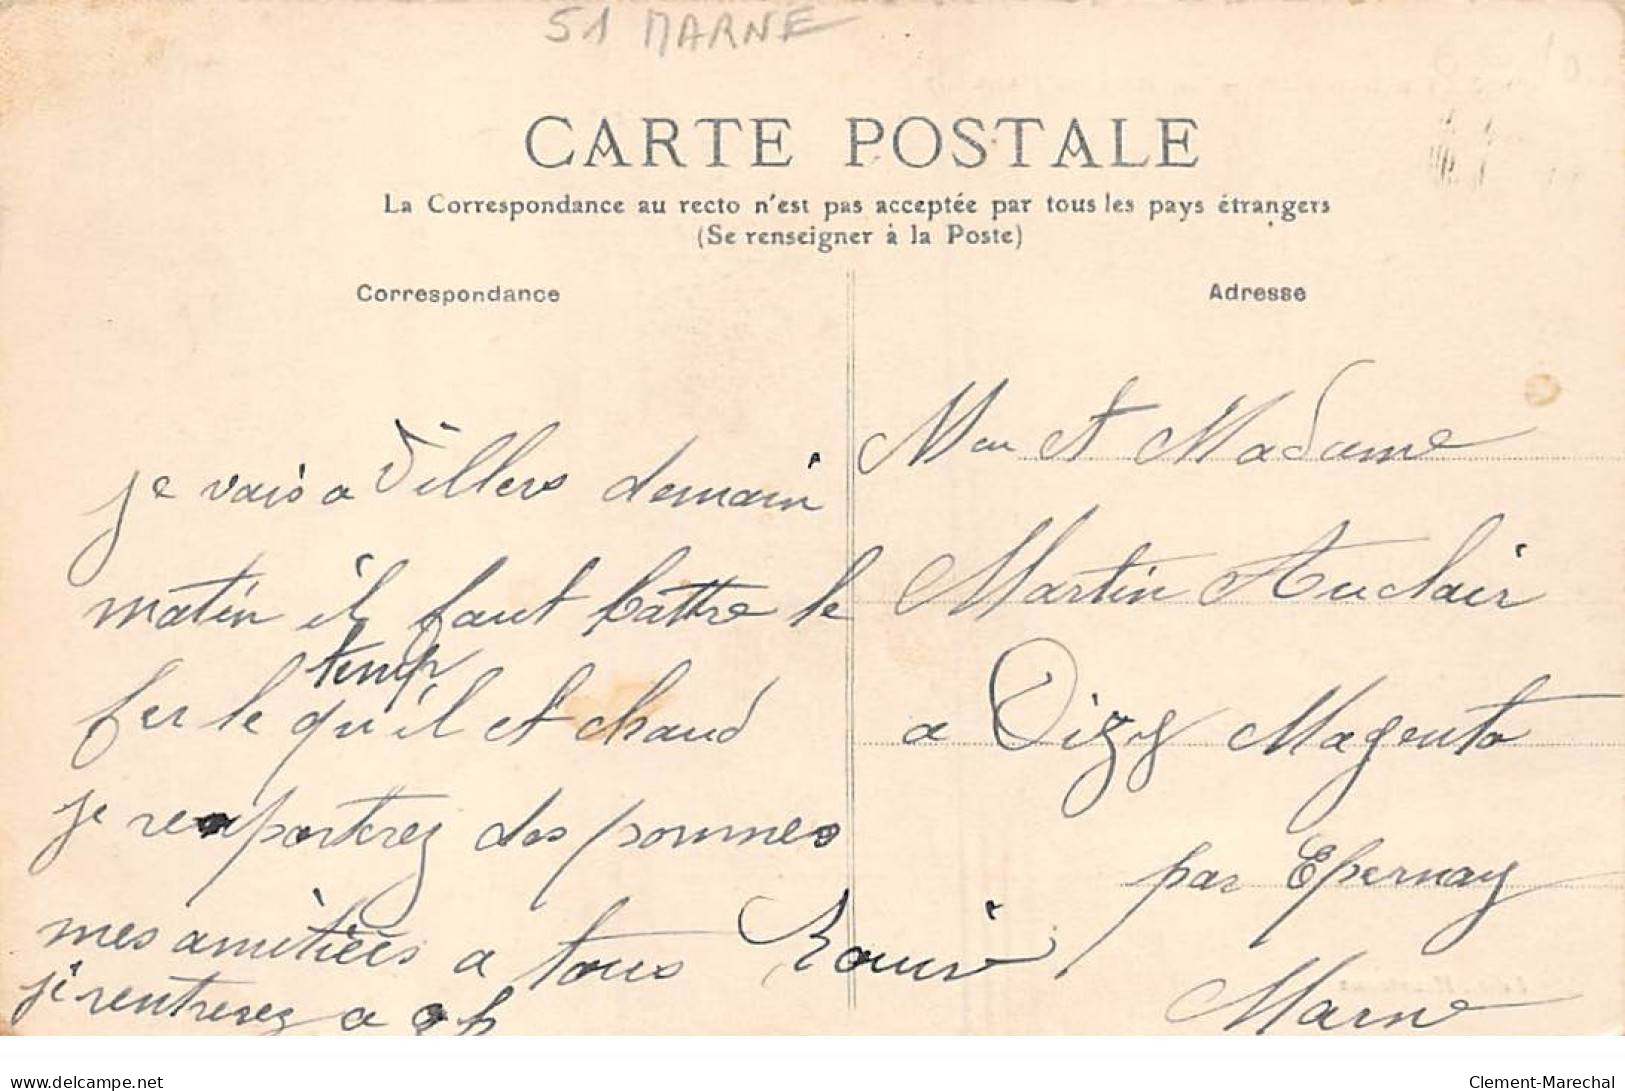 51 MARNE
CARTE POSTALE
La Correspondance au recto n'est pas acceptée par tous les pays étrangers
(Se renseigner à la Poste)
Correspondance
Adresse
je vais a Villers demain
matin il faut battre le
fer le temp qu'il et chaud
je reaporterez des pommes
mes amitiées a tous
j'rentrerez a
Mon et Madame
Martin Auclair
a Dizy Magenta
par Epernay
Marne
Clement-Marechal
www.delcampe.net